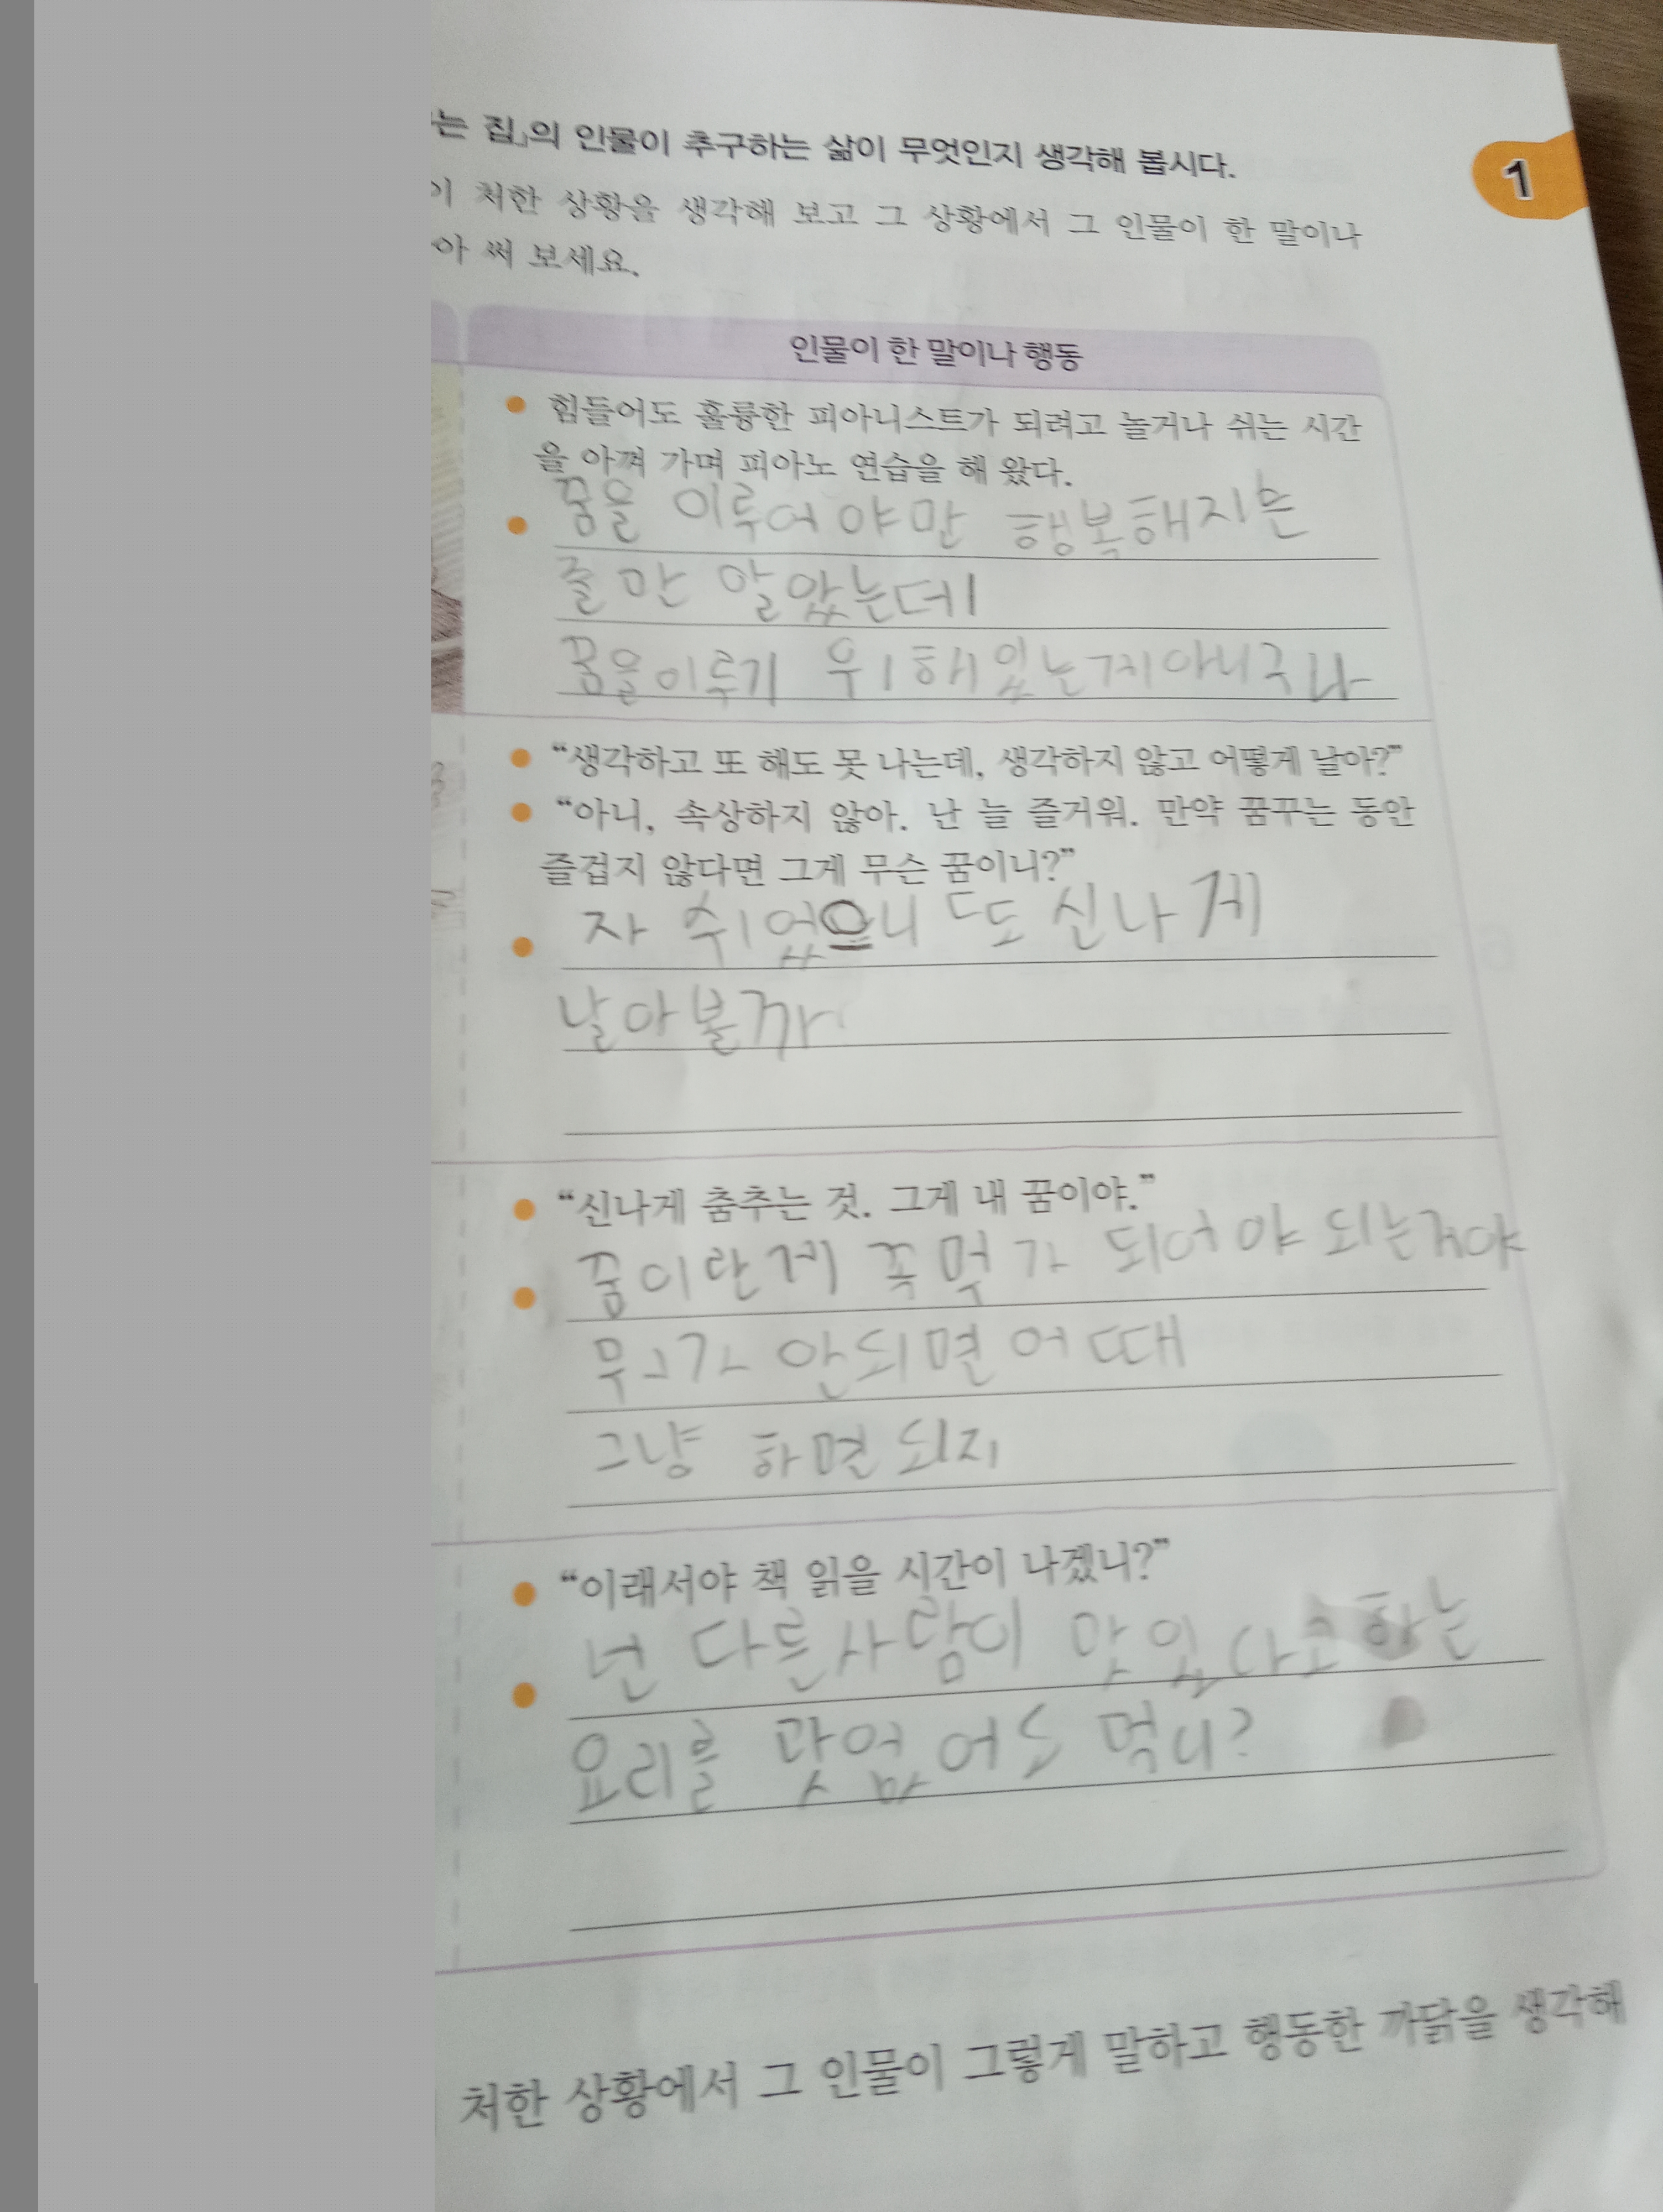 는 집」의 인물이 추구하는 삶이 무엇인지 생각해 봅시다.
1
이 처한 상황을 생각해 보고 그 상황에서 그 인물이 한 말이나
아 써 보세요.
인물이 한 말이나 행동
힘들어도 훌륭한 피아니스트가 되려고 놀거나 쉬는 시간
을 아껴 가며 피아노 연습을 해 왔다.
꿈을 이루어야만 행복해지는
줄만 알았는데
꿈을이루기 위해있는게아니구나
“생각하고 또 해도 못 나는데, 생각하지 않고 어떻게 날아?”
“아니, 속상하지 않아. 난 늘 즐거워. 만약 꿈꾸는 동안
즐겁지 않다면 그게 무슨 꿈이니?”
자 쉬었으니 또 신나게
날아볼까
“신나게 춤추는 것. 그게 내 꿈이야.”
꿈이란게 꼭 가 되어야 되는거야
안되면 어때
그냥 하면되지
“이래서야 책 읽을 시간이 나겠니?”
넌 다른사람이 맛있다고하는
요리를 맛없어도 먹니?
처한 상황에서 그 인물이 그렇게 말하고 행동한 까닭을 생각해